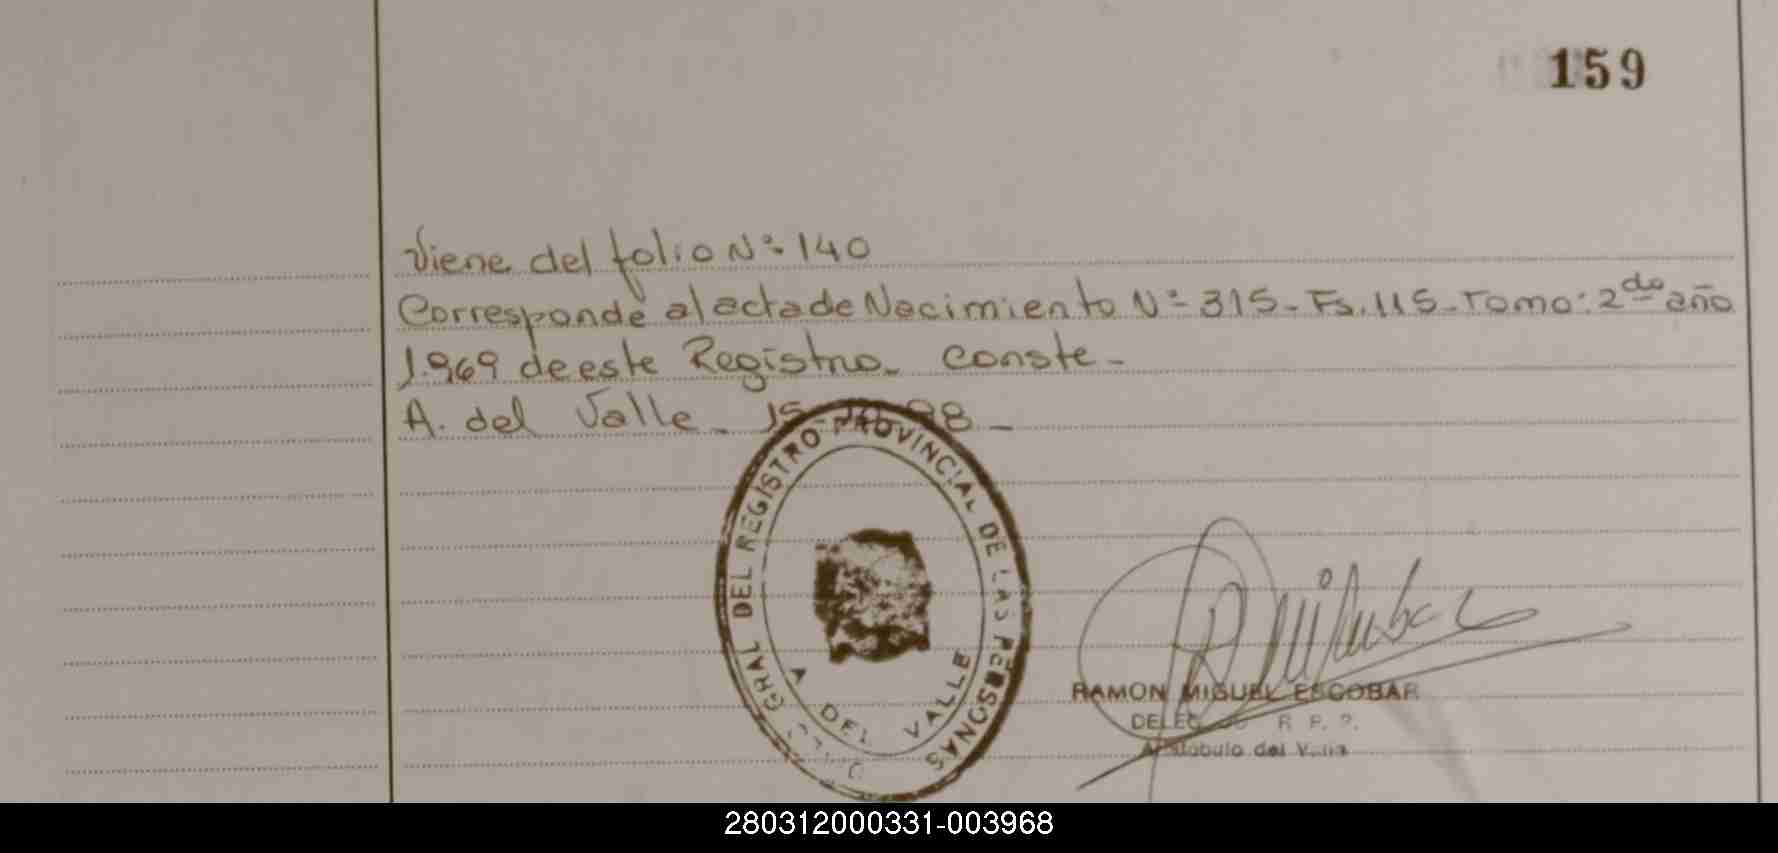 159
Viene del folio Nº 140
Corresponde al acta de Nacimiento Nº 315 - Fs. 115 - Tomo: 2do año
1.969 de este Registro. Conste -
A. del Valle - 15-10-98 -
GRAL DEL REGISTRO PROVINCIAL DE LAS PERSONAS
A DEL VALLE
RAMON MIGUEL ESCOBAR
R. P. P.
Aristobulo del Valle
280312000331-003968